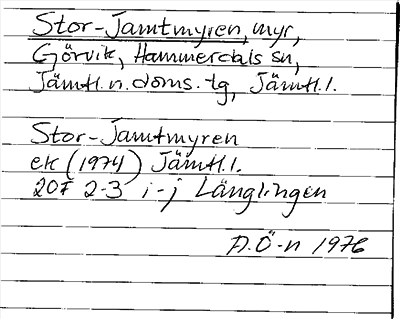 Stor-Jamtmyren, myr,
Görvik, Hammerdals sn,
Jämtl. n. doms. tg, Jämtl. l.
Stor-Jamtmyren
ek (1974) Jämtl. l.
20F 2-3 i-j Länglingen
A.Ö-n 1976